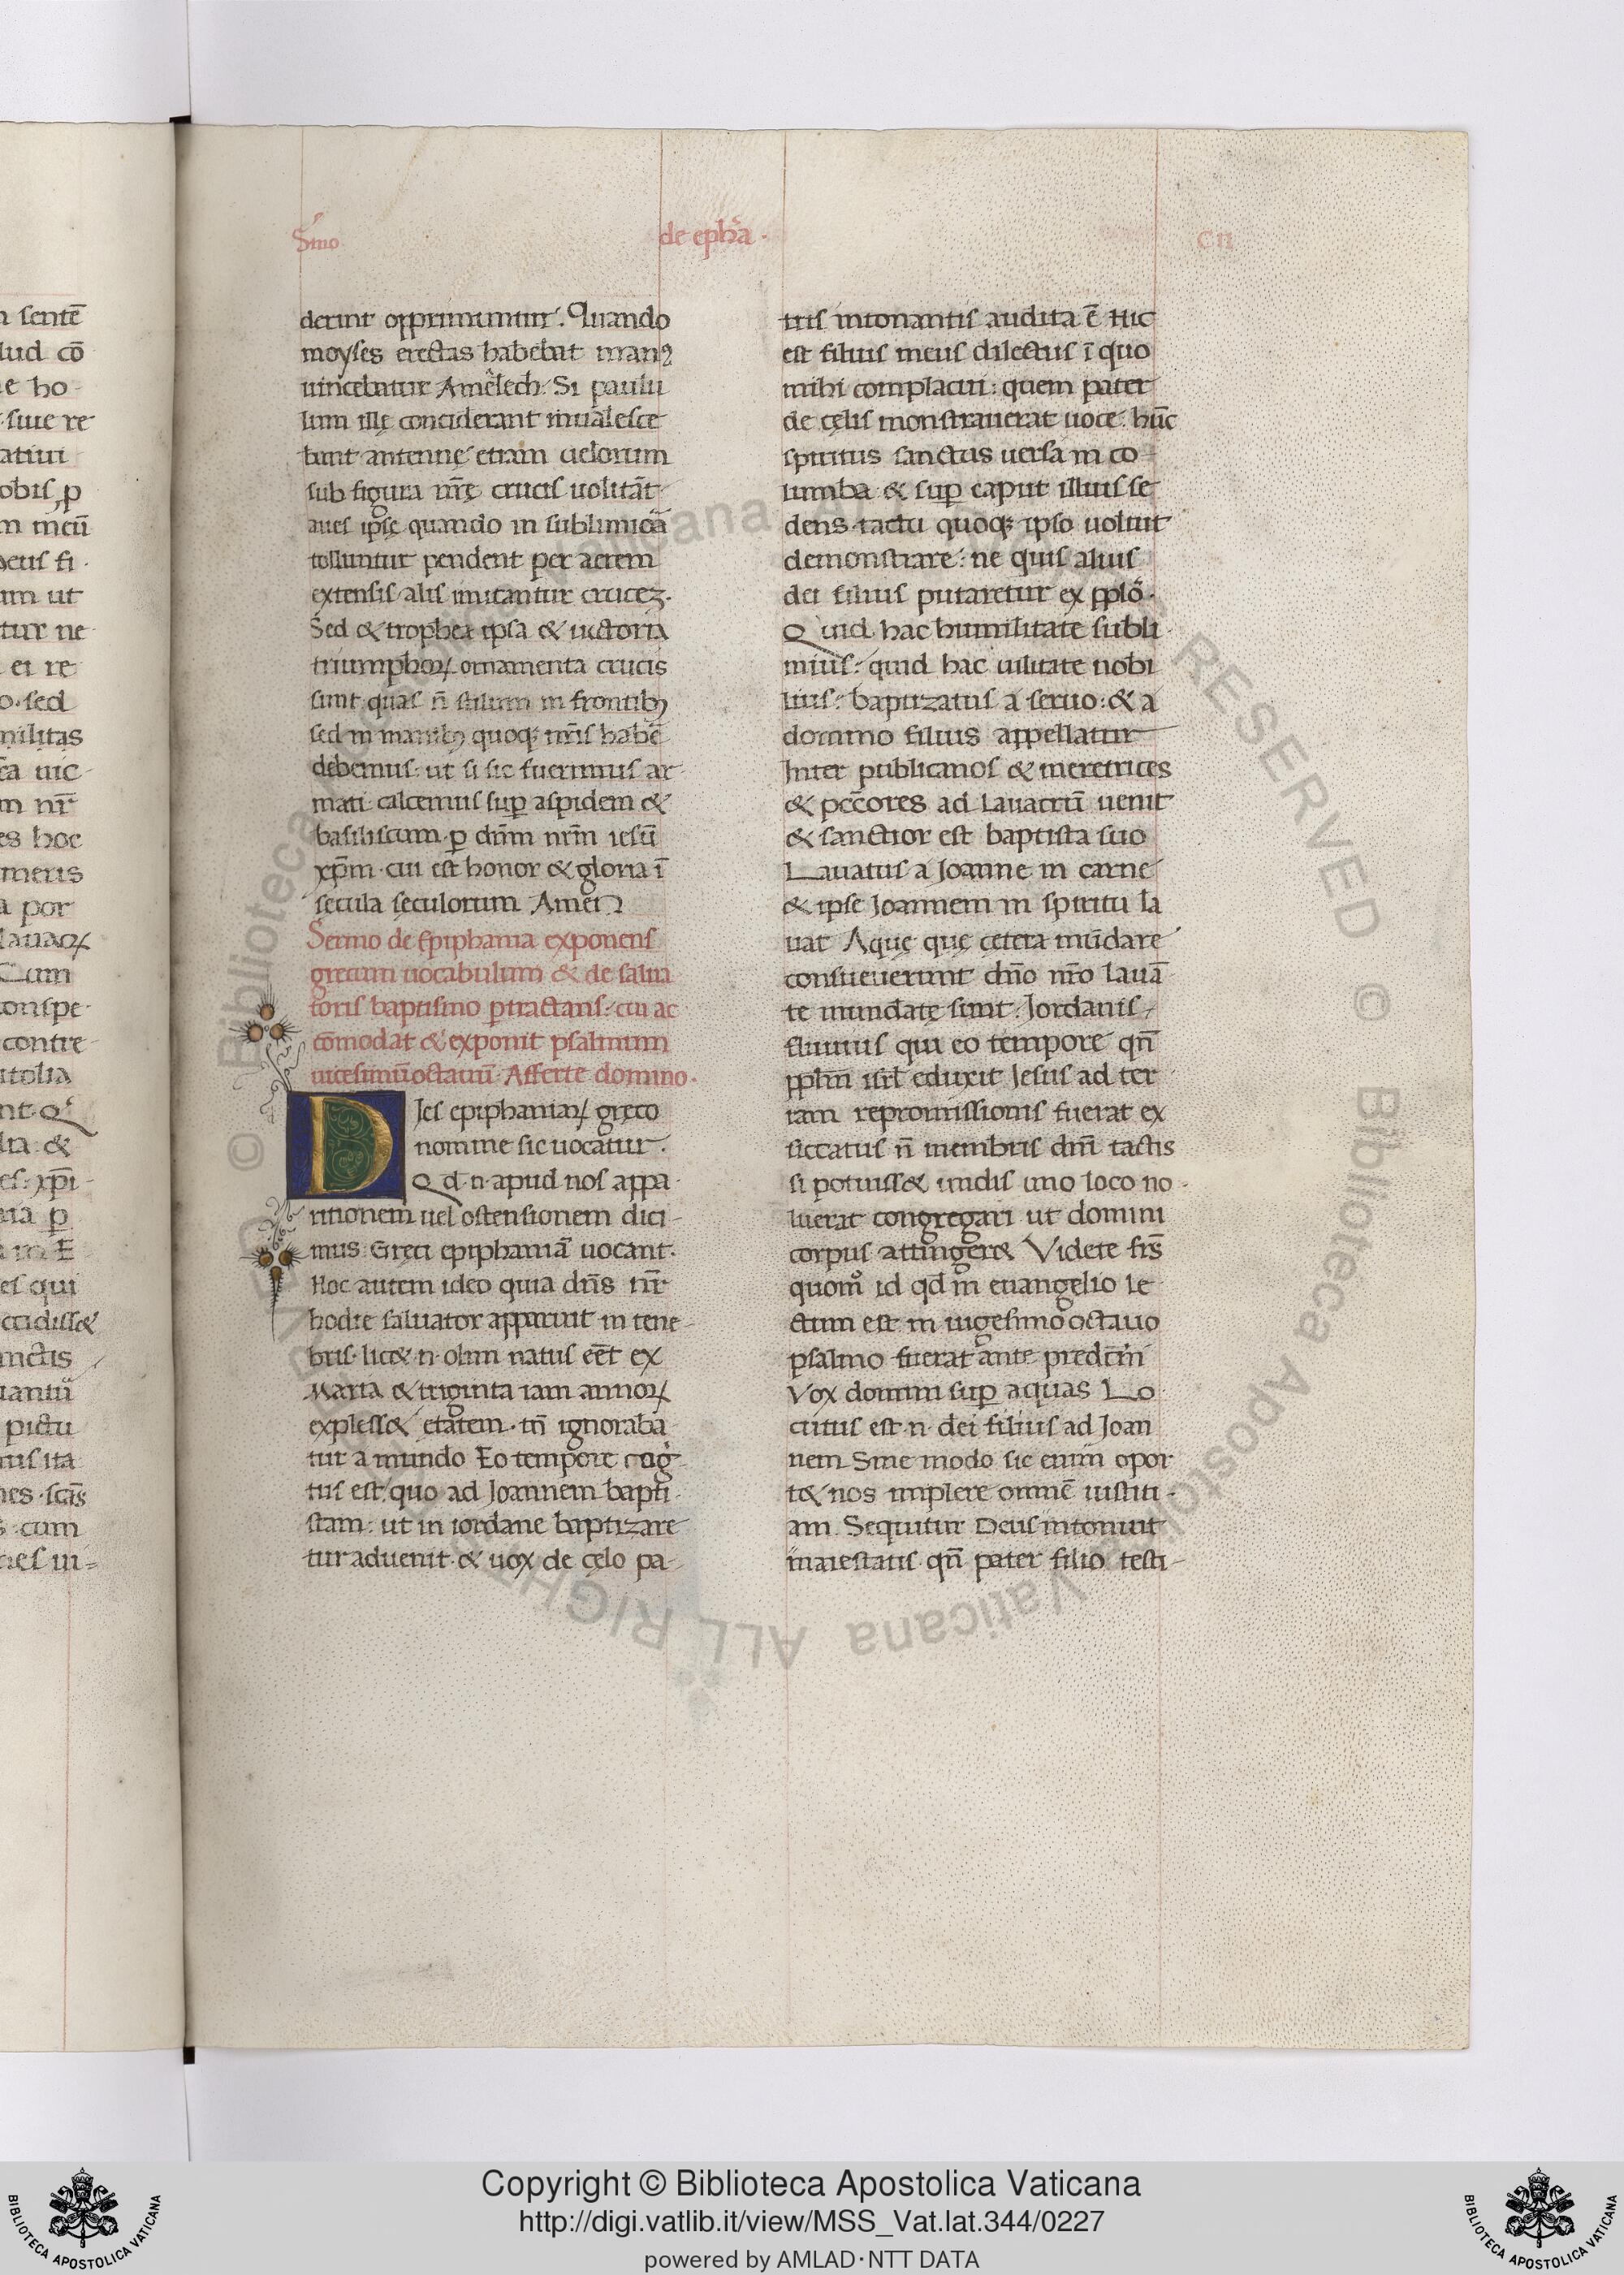 Smo
de epħa ·
CII
derint opprimuntur. Quando
moyses erectas habebat manꝰ
uincebatur Amelech. Si paulu
lum illę conciderant inualesce
bant antennę etiam uelorum
sub figura nr̄ę crucis uolitāt
aues ipse quando in sublimiōa
tolluntur pendent per aerem
extensis alis imitantur crucez.
Sed & trophea ipsa & uictoria
triumphoꝝ ornamenta crucis
sunt quas n̄ solum in frontibꝫ
sed in manibꝫ quoqꝫ nr̄is habē
debemus: ut si sic fuerimus ar
mati calcemus sup̱ aspidem &
basiliscum ꝑ dn̄m nrm̄ iesū
xp̄m · cui est honor & gloria ī
secula seculorum Amen
Sermo de Epiphania exponens
grecum uocabulum & de salua
toris baptismo ꝑtractans: cui ac
cōmodat & exponit psalmum
uicesimū octauū Afferte domino ·
Dies epiphaniaꝝ gręco
nomine sic uocatur.
Qd · n · apud nos appa
ritionem uel ostensionem dici
mus Gręci epiphaniā uocant.
Hoc autem ideo quia dn̄s nr̄
hodie saluator apparuit in tene
bris · lic& · n · olim natus eēt ex
Maria & triginta iam annoꝝ
expless& etatem · tn̄ ignoraba
tur a mundo Eo tempore
tus est, quo ad Joannem bapti
stam: ut in iordane baptizare
tur aduenit · & uox de cęlo pa
tris intonantis audita ē Hic
est filius meus dilectus ī quo
mihi complacui: quem pater
de cęlis monstrauerat uoce: hūc
spiritus sanctus uersa in co
lumba & sup̱ caput illius se
dens · tactu quoqꝫ ipso uoluit
demonstrare: ne quis alius
dei filius putaretur ex pplō ·
Quid hac humilitate subli
mius: quid hac uilitate nobi
lius: baptizatus a seruo: & a
domino filius appellatur
Inter publicanos & meretrices
& pcc̄ores ad lauacrū uenit
& sanctior est baptista suo
Lauatus a Joanne in carne
& ipse Joannem in spiritu la
uat Aquę quę cętera mūdare
consueuerunt dn̄o nr̄o lauā
te mundatę sunt. Jordanis
fluuius qui eo tempore qn̄
pplm̄ isrł eduxit Jesus ad ter
ram repromissionis fuerat ex
siccatus n̄ membris dm̄ tactis
si potuiss& undis uno loco no
luerat congregari ut domini
corpus attinger& Videte frs̄
quom̊ id qd̄ in euangelio le
ctum est in uigesimo octauo
psalmo fuerat ante predcm̄
Vox domini sup̱ aquas Lo
cutus est · n · dei filius ad Joan
nem Sine modo sic enim opor
t& nos implere omnē iustiti
am Sequitur Deus intonuit
maiestatis qn̄ pater filio testi
Copyright © Biblioteca Apostolica Vaticana
http://digi.vatlib.it/view/MSS_Vat.lat.344/0227
powered by AMLAD·NTT DATA